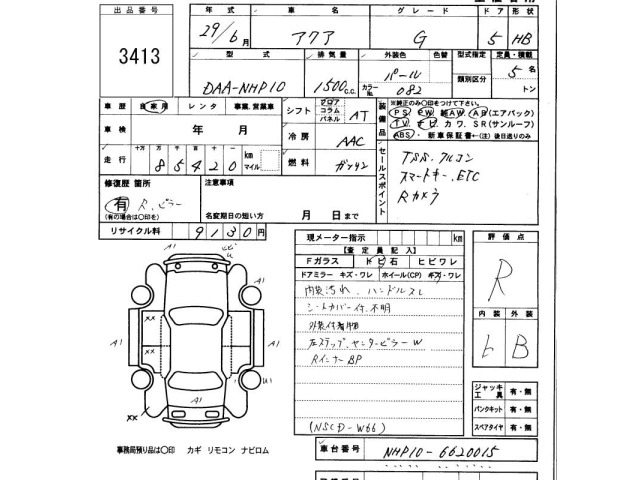 出品番号
3413
年式 車名 グレード ドア 形状
29/6月 アクア G 5 HB
型式 排気量 外装色 色替 型式指定 定員・積載
DAA-NHP10 1500c.c. パール カラーNo. 082 類別区分 5名 トン
車歴 自家用 レンタ 事業.営業車
シフト フロア コラム パネル AT
装備品 ※純正のみ〇印をつけて下さい。
PS PW 純AW. AB(エアバック)
TV ナビ カワ. SR(サンルーフ)
ABS 新車保証書←(注)後日送りのみ
車検 年 月
冷房 AAC
走行 十万 万 千 百 十
85420 km マイル
燃料 ガソリン
セールスポイント
TSS. アルコン
スマートキー. ETC
Rカメラ
修復歴 箇所
有 R.ピラー
(有の場合は〇印を)
注意事項
名変期日の短い方 月 日まで
リサイクル料 9130円
現メーター指示 km
【査定員記入】
Fガラス トビ石 ヒビワレ
ドアミラー キズ・ワレ ホイール(CP) キズ・ワレ
内装汚れ. ハンドルスレ
シートカバー付. 不明
外装付着物
左ステップ. センターピラーW
RインナーBP
(NSCD-W66)
評価点
R
内装 外装
B
ジャッキ 工具 有・無
パンクキット 有・無
スペアタイヤ 有・無
A1
A1
A1
A1
A1
U1
XX
XX
XX
事務局預り品は〇印 カギ リモコン ナビロム
車台番号 NHP10-6620015